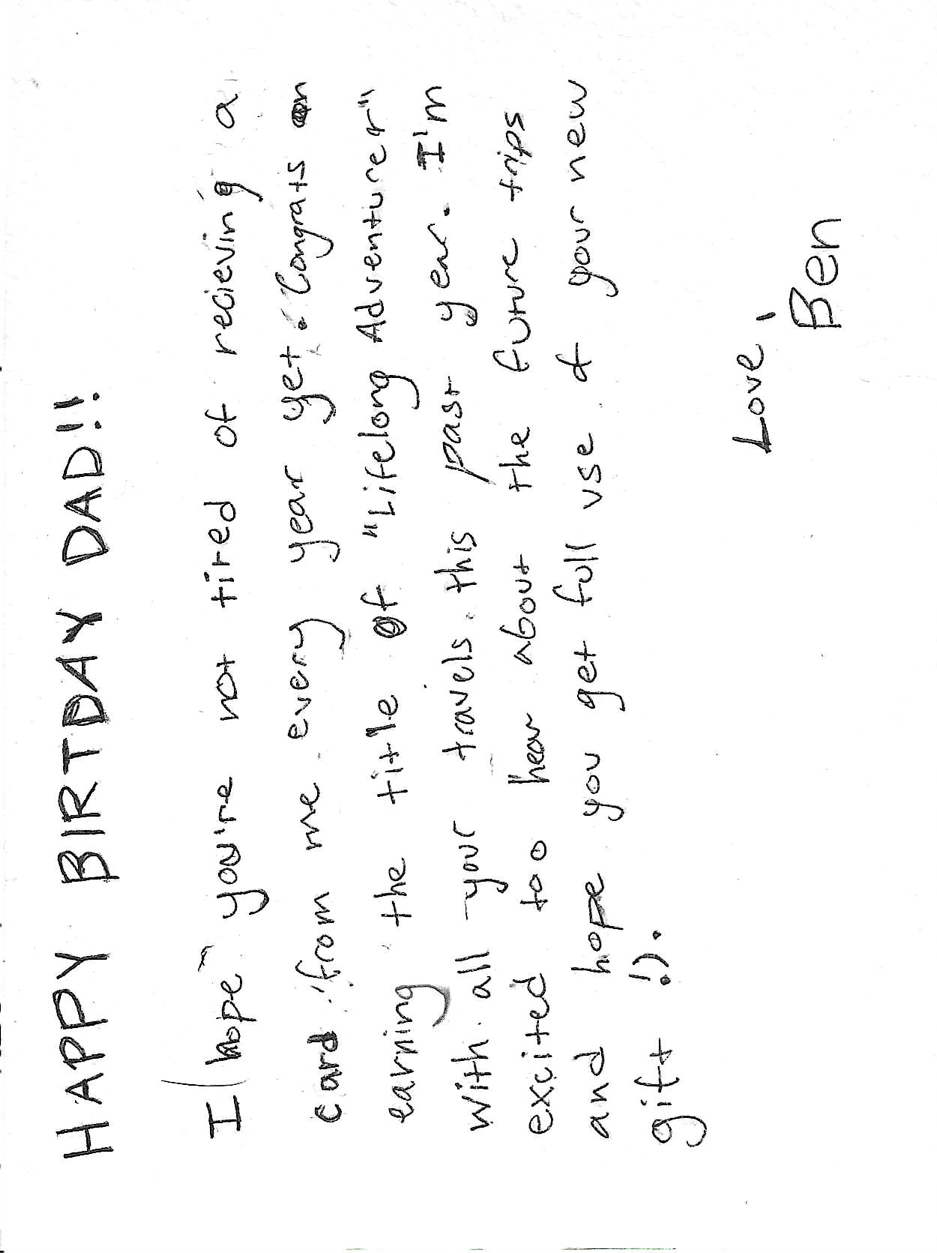 HAPPY BIRTDAY DAD!!
I hope you're not tired of recieving a
card from me every year yet. Congrats on
earning the title of "Lifelong Adventurer"
with all your travels this past year. I'm
excited too hear about the future trips
and hope you get full use of your new
gift :).
Love,
Ben